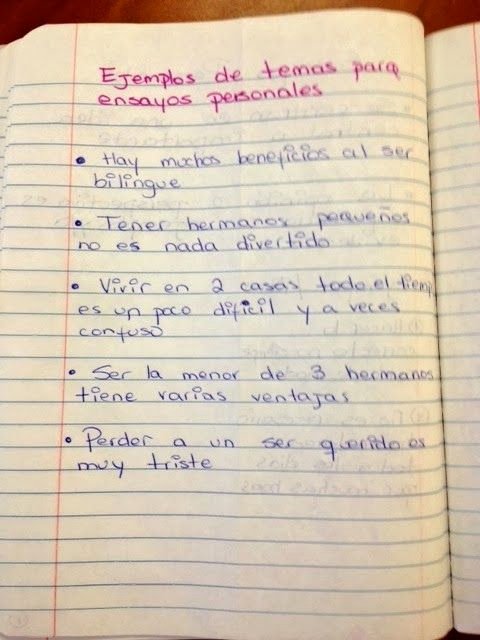 Ejemplos de temas para
ensayos personales
• Hay muchos beneficios al ser
bilingue
• Tener hermanos pequeños
no es nada divertido
• Vivir en 2 casas todo el tiemp
es un poco dificil y a veces
confuso
• Ser la menor de 3 hermanos
tiene varias ventajas
• Perder a un ser querido es
muy triste